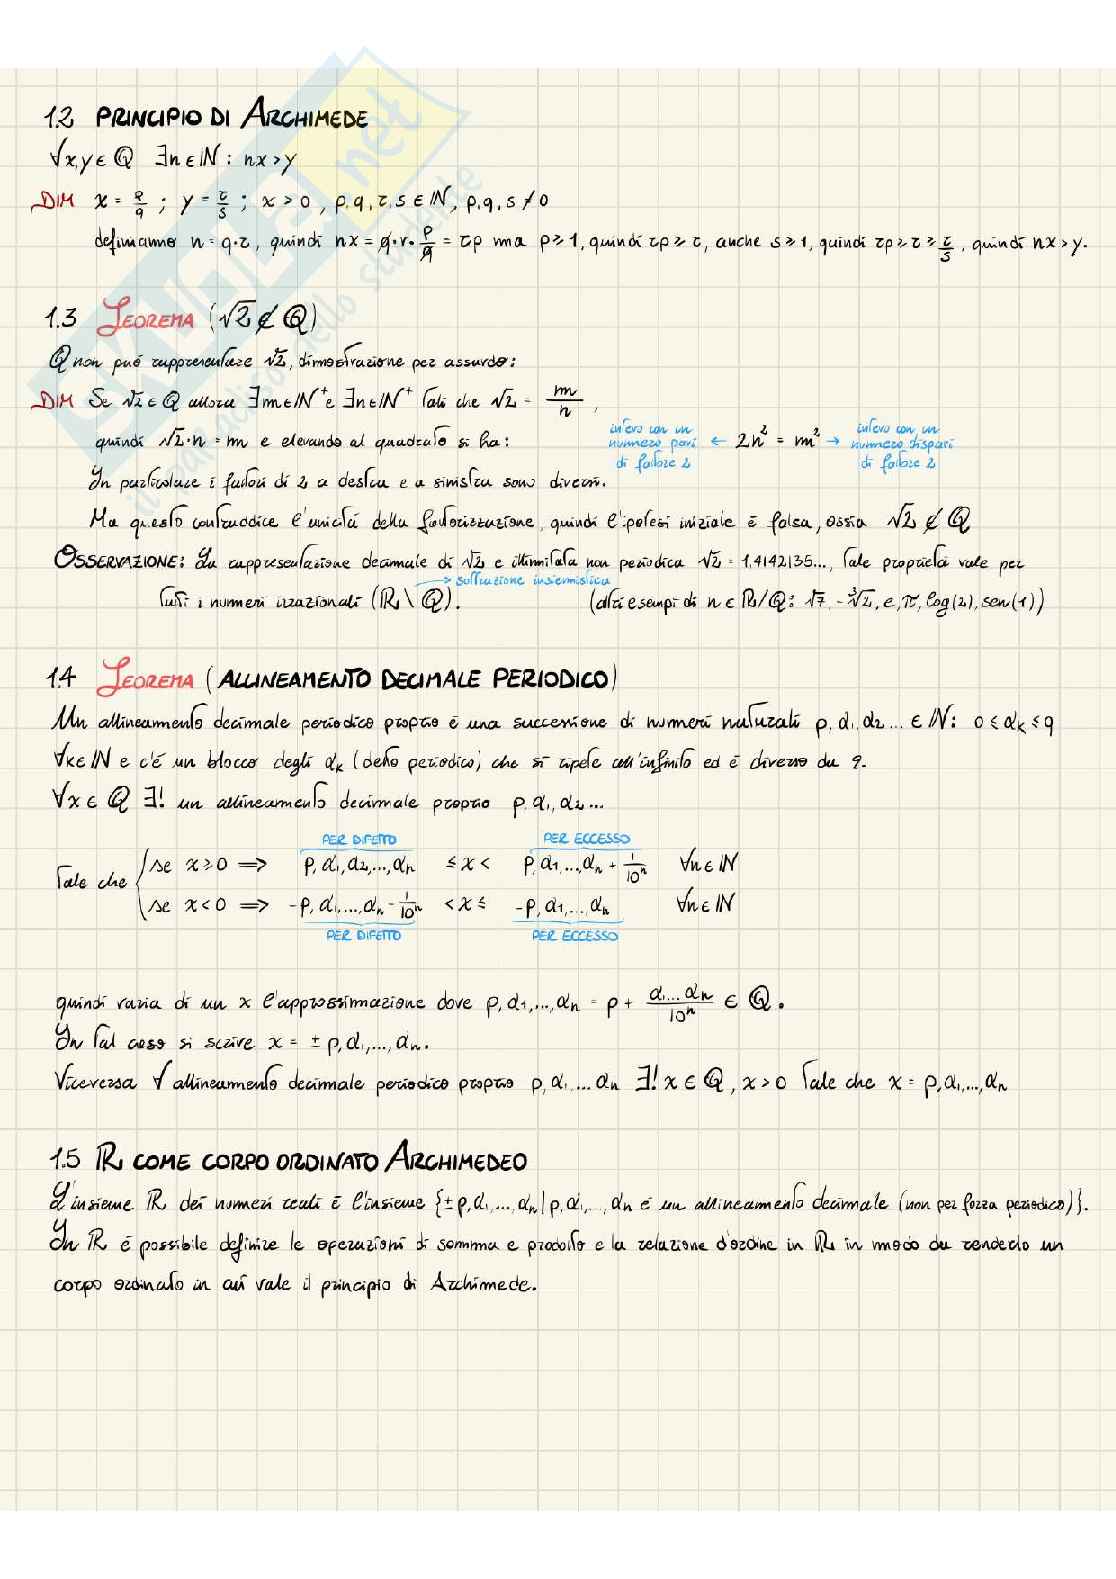 1.2 PRINCIPIO DI ARCHIMEDE
∀x,y ∈ ℚ ∃n ∈ ℕ : nx > y
DIM x = p/q ; y = r/s ; x > 0 , p,q,r,s ∈ ℕ, p,q,s ≠ 0
definiamo n = q·r, quindi nx = q·r·p/q = rp ma p ≥ 1, quindi rp ≥ r, anche s ≥ 1, quindi rp ≥ r ≥ r/s, quindi nx > y.
1.3 TEOREMA (√2 ∉ ℚ)
ℚ non può rappresentare √2, dimostrazione per assurdo:
DIM Se √2 ∈ ℚ allora ∃m ∈ ℕ⁺ e ∃n ∈ ℕ⁺ tali che √2 = m/n,
quindi √2·n = m e elevando al quadrato si ha: intero con un numero pari di fattore 2 ← 2n² = m² → intero con un numero dispari di fattore 2
In particolare i fattori di 2 a destra e a sinistra sono diversi.
Ma questo contraddice l'unicità della fattorizzazione, quindi l'ipotesi iniziale è falsa, ossia √2 ∉ ℚ
OSSERVAZIONE: La rappresentazione decimale di √2 è illimitata non periodica √2 = 1,4142135..., tale proprietà vale per
→ sottrazione insiemistica
tutti i numeri irrazionali (ℝ \ ℚ). (altri esempi di n ∈ ℝ/ℚ: √7, -³√2, e, π, log(2), sen(1))
1.4 TEOREMA (ALLINEAMENTO DECIMALE PERIODICO)
Un allineamento decimale periodico proprio è una successione di numeri naturali p,α₁,α₂... ∈ ℕ: 0 ≤ αₖ ≤ 9
∀k ∈ ℕ e c'é un blocco degli αₖ (detto periodico) che si ripete all'infinito ed é diverso da 9.
∀x ∈ ℚ ∃! un allineamento decimale proprio p,α₁,α₂...
PER DIFETTO PER ECCESSO
Tale che { se x ≥ 0 ⇒ p,α₁,α₂,...,αₙ ≤ x < p,α₁,...,αₙ + 1/10ⁿ ∀n ∈ ℕ
se x < 0 ⇒ -p,α₁,...,αₙ - 1/10ⁿ < x ≤ -p,α₁,...,αₙ ∀n ∈ ℕ
PER DIFETTO PER ECCESSO
quindi varia di un x l'approssimazione dove p,α₁,...,αₙ = p + α₁...αₙ/10ⁿ ∈ ℚ.
In tal caso si scrive x = ± p,α₁,...,αₙ.
Viceversa ∀ allineamento decimale periodico proprio p,α₁...αₙ ∃! x ∈ ℚ, x > 0 tale che x = p,α₁,...,αₙ
1.5 ℝ COME CORPO ORDINATO ARCHIMEDEO
L'insieme ℝ dei numeri reali è l'insieme {± p,α₁,...,αₙ | p,α₁,...,αₙ è un allineamento decimale (non per forza periodico)}.
In ℝ é possibile definire le operazioni di somma e prodotto e la relazione d'ordine in ℝ in modo da renderlo un
corpo ordinato in cui vale il principio di Archimede.